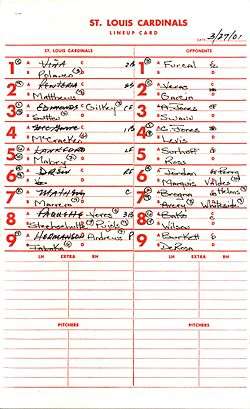 ST. LOUIS CARDINALS
LINEUP CARD
DATE 3/27/01
ST. LOUIS CARDINALS OPPONENTS
1 VIÑA 2B 1 Furcal SS
Polanco
2 RENTERIA SS 2 Veras
Matthews Garcia
3 EDMONDS CF 3 A. Jones
Sutton
4 McGwire 1B 4 C. Jones
McCracken Lewis
5 LANKFORD LF 5 Surhoff
Mabry Ross
6 DREW RF 6 Jordan
Marquis Valdes
7 MATHENY C 7 Bragna Helms
Marrero Avery Whiteside
8 PAQUETTE Veres 3B 8 Bako
Stechschulte Pujols Wilson
9 HERMANSON Andrews P 9 Burkett
Tabaka DeRosa
LH EXTRA RH LH EXTRA RH
PITCHERS PITCHERS